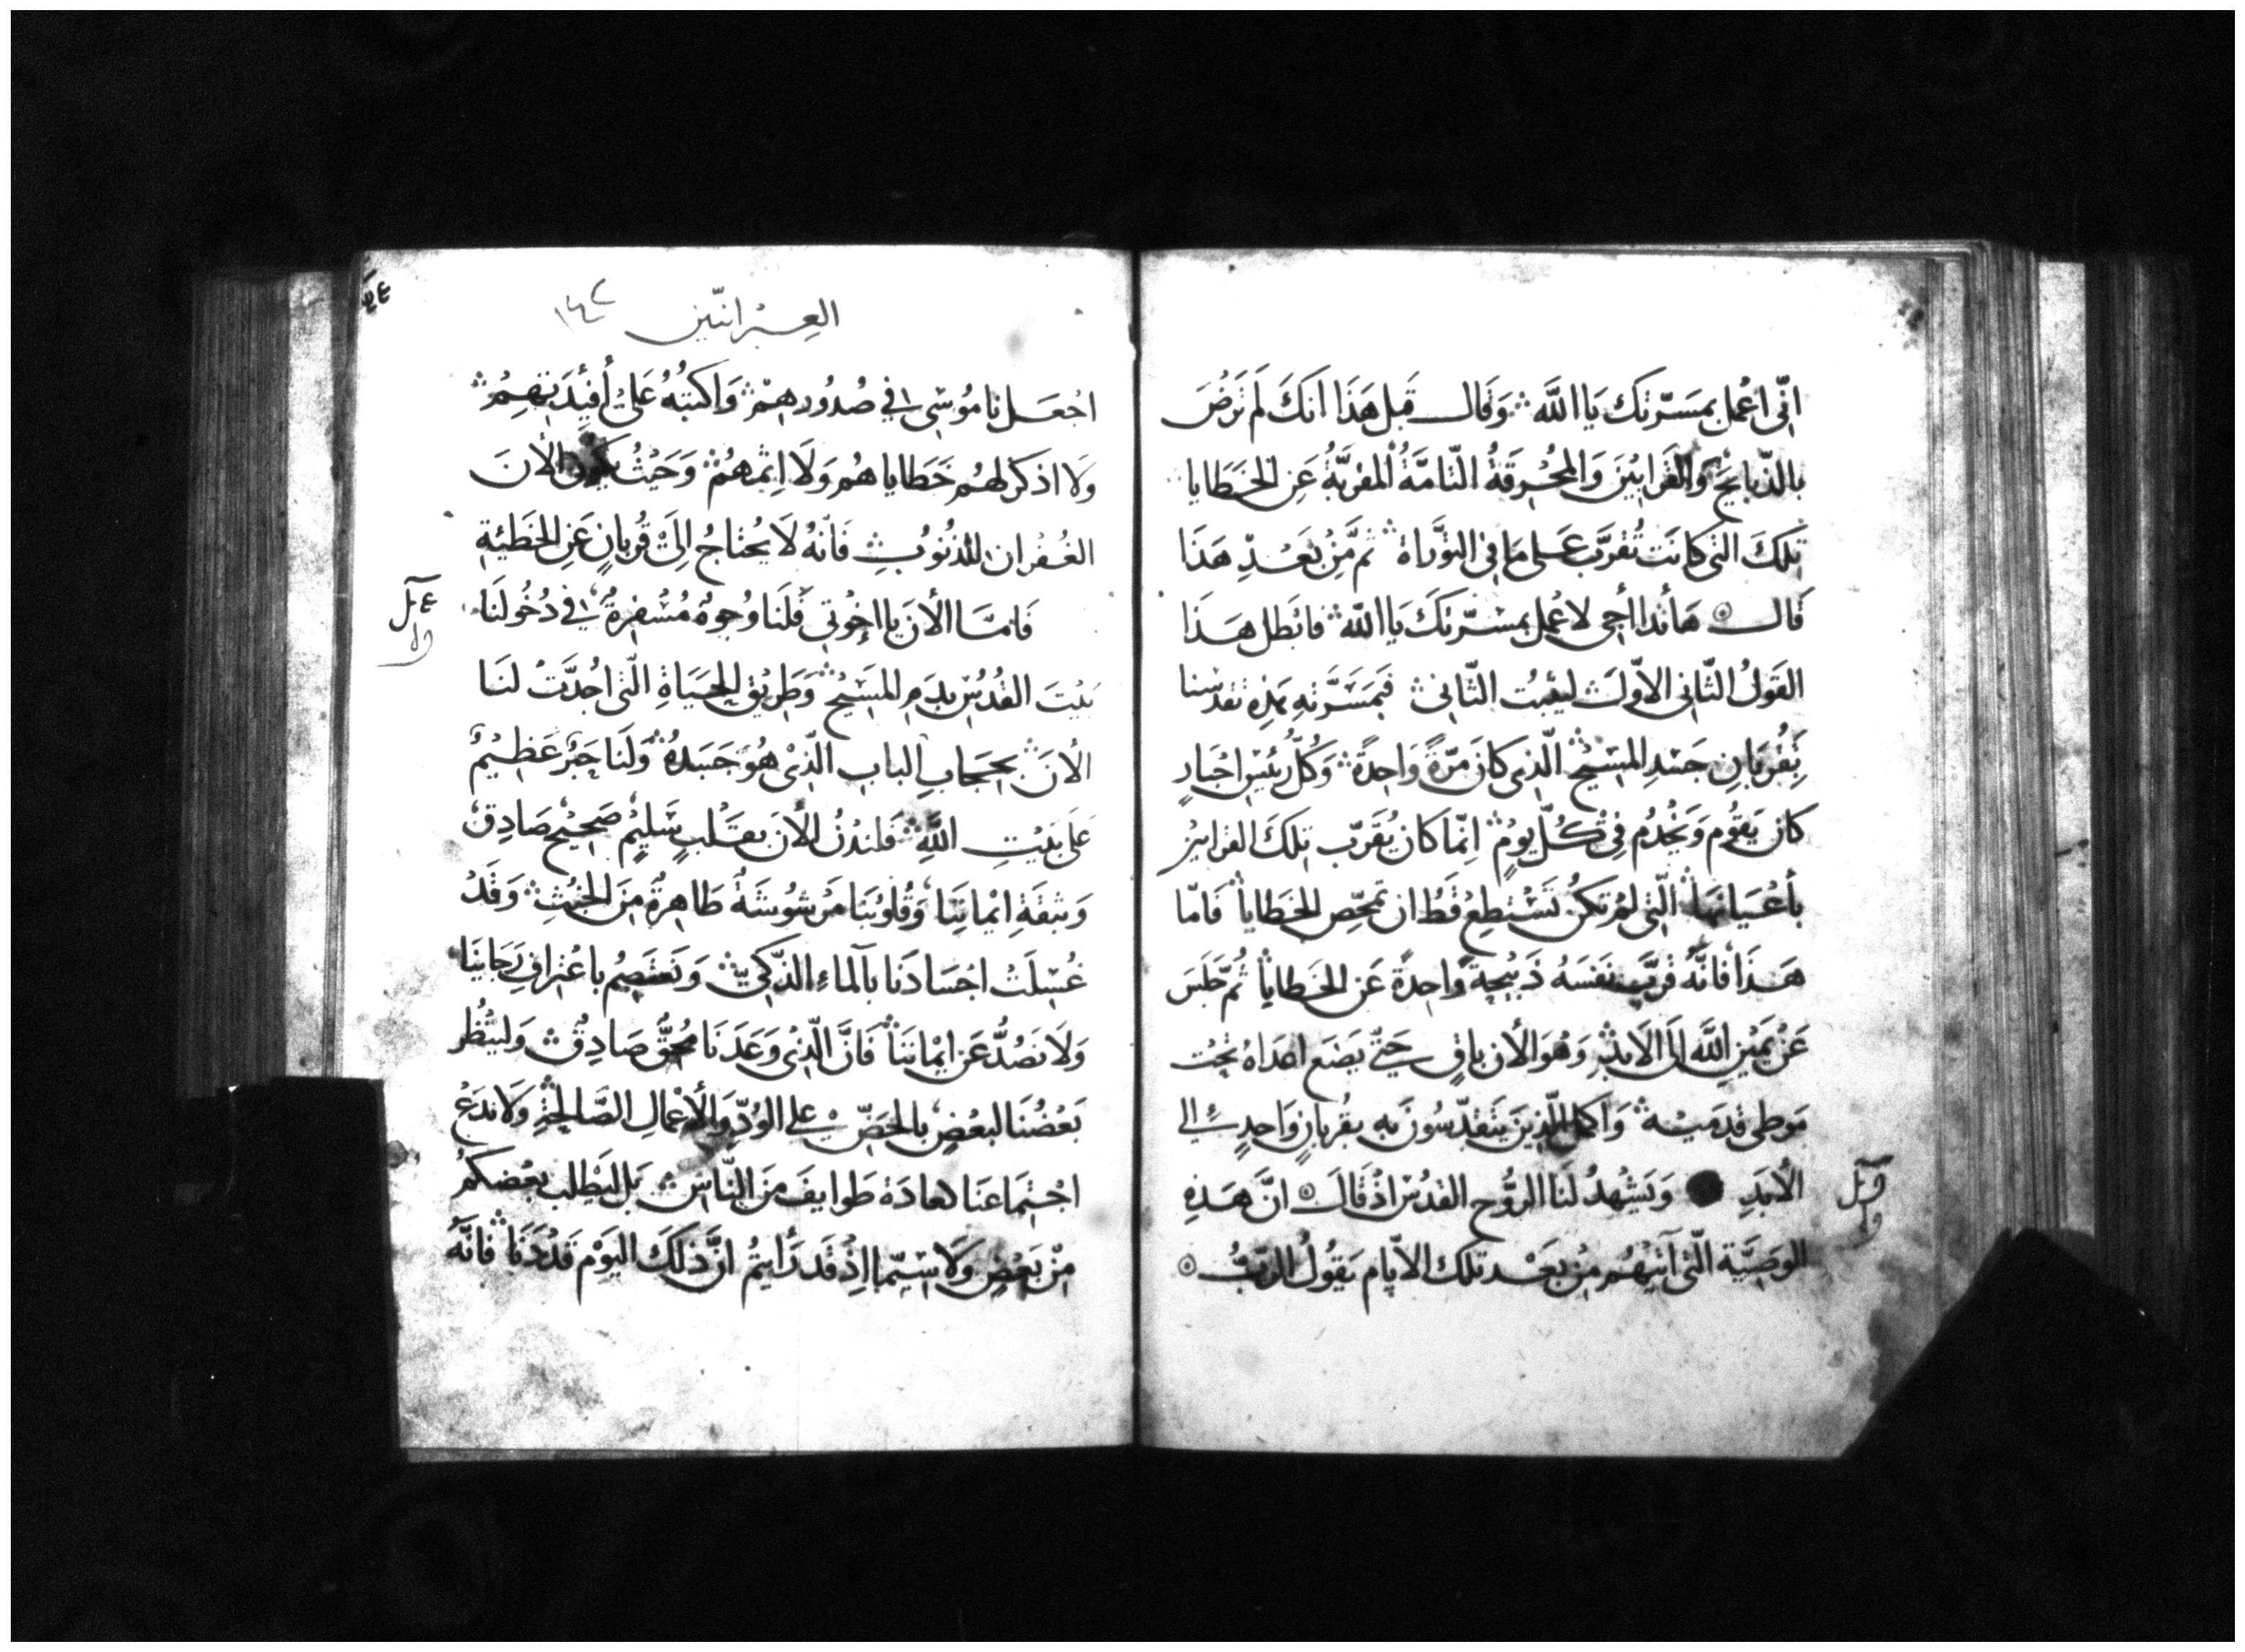 انّي اعْمل بمَسَرّتك يَا اللَّه ۞ وَقَال قَبل هَذَا اَنكَ لَم تَرْضَ
بالذّبايحْ وَالقَرابِيْنَ وَالمُحْرَقَةُ التّامَّةُ المُقربَّةُ عَنِ الخَطَايا
تلكَ التى كانَت تُقرَّب عَلى مَا في التوْرَاة ثمَّ مِنْ بَعْدِ هَذَا
قَال ۞ هَأنذا أجى لاعْمل بمسّرتكَ يَا اللَّه فابْطل هَذَا
القَولُ الثّانى الاوّل ليثْبُت الثّانى فبمَسَرَّته هَذِه تقدّسنا
بِقُربَانِ جَسَدِ المسِيْح الّذى كانَ مَرّةً وَاحِدَةً وَكُلُّ رئيْس احْبَارٍ
كان يَقوُم وَيَخْدُم فِى كُلّ يَومٍ اِنّما كان يُقَرّب تِلكَ القرابين
بأعْيَانهَا الّتى لمْ تكنْ تَسْتطِعْ قَطُ ان تمحّص الخَطايا فَامّا
هَذا فانَّهُ قرَّب نفسَهُ ذَبيْحةً وَاحِدةً عَن الخَطايا ثُمّ جَلسَ
عَنْ يَمِيْنِ اللَّه اِلىَ الاَبدْ وَهُوَ الأن باقٍ حَتّى يَضَع اعدَاهُ تحْت
مَوطى قدمَيْه وَاكمل الّذِينَ يَتَقدّسُونَ بهِ بقُربانٍ وَاحِدٍ الى
الأبَدِ وَيَشهْدُ لنَا الروُّح القدُسْ اذْ قَالَ ۞ انَّ هَذِهِ
الوصِيَّة الّتى آتيْهُم مِنْ بَعْد تلك الايّام يَقوُلُ الرّبُّ ۞
العِبْرانيّين ١٦٢
اجْعَل نامُوسِى في صُدُورهِمْ وَاكتبُهُ عَلى أفئِدَتهِمُ
وَلا اذكر لهُم خَطاياهُم وَلَا اِثمهُمْ وَحَيْثُ يكون الأنَ
الغُفْران للذنُوبِ فَانّهُ لَا يُحتاجُ اِلَى قُربانٍ عَنِ الخَطيئةِ
فَامّا الأنَ يا اخْوتي فَلَنا وُجوهُ مُسْفِرةُ في دُخُولنَا
بَيْتَ القُدُسْ بدَمِ المسِيْح وَطَريْق الحيَاةِ الّتى اجُدَّتْ لنَا
الأنَ بحجَابِ الباب الّذِىْ هُوَ جَسَدهُ وَلَنا حَبْر عَظِيْمُ
عَلى بَيْتِ اللَّهِ فَلندْنُ الأنَ بقلبٍ سَليْمٍ صَحِيْح صَادِق
وَبثقَةِ ايْماننا وَقُلوُبُنا مَرشوُشَةُ طَاهِرةُ مِنَ الخبْثِ وَقَدْ
غُسِلَتْ اجْسَادنَا بآلماءِ الذّكىّ وَنعتصِمُ باعْترافِ رَجَاينا
وَلَا نَصُدُّ عَن ايْماننا فَانَّ الّذىْ وَعَدَنَا مُحقُّ صَادِقُ وَلينْظر
بَعْضُنَا لبعْضٍ بالحَضِّ على الوُدِّ وَالأعْمالِ الصَّالحةِ وَلَا ندعْ
اجْتِمَاعنَا كعادَة طَوايفَ مَنَ النّاسْ بَل ليَطلب بعْضكمُ
مِنْ بَعْضٍ وَلاَ سِيَّما اذِ قَد رَأيتمُ انَّ ذلكَ اليَوْم قَدْ دَنَا فانَّهُ